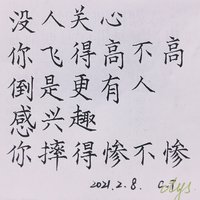 没人关心
你飞得高不高
倒是更有人
感兴趣
你摔得惨不惨
2021.2.8.